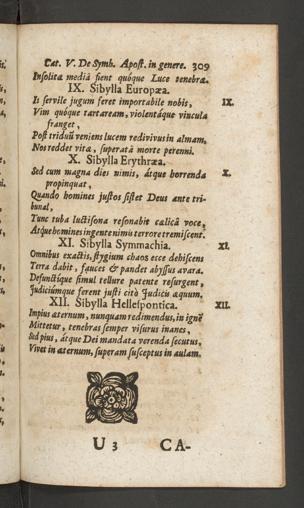 Cat. V. De Symb. Apoſt. in genere. 309
Inſolita mediâ fient quóque Luce tenebræ.
IX. Sibylla Europæa.
Is ſervile jugum feret importabile nobis, IX.
Vim quóque tartaream, violentáque vincula
franget,
Poſt triduū veniens lucem redivivus in almam,
Nos reddet vitæ, ſuperatâ morte perenni.
X. Sibylla Erythræa.
Sed cum magna dies nimis, átque horrenda X.
propinquat,
Quando homines juſtos ſiſtet Deus ante tri-
bunal,
Tunc tuba luctiſona reſonabit cælica voce,
Atque homines ingente nimis terrore tremiſcent.
XI. Sibylla Symmachia. XI.
Omnibus exactis, ſtygium chaos ecce dehiſcens
Terra dabit, fauces & pandet abyſſus avara.
Defunctíque ſimul tellure patente reſurgent,
Judiciúmque ferent juſti citò Judicis æquum.
XII. Sibylla Helleſpontica. XII.
Impius æternum, nunquam redimendus, in ignē
Mittetur, tenebras ſemper viſurus inanes,
Sed pius, átque Dei mandata verenda ſecutus,
Vivet in æternum, ſuperam ſuſceptus in aulam.
U 3 CA-